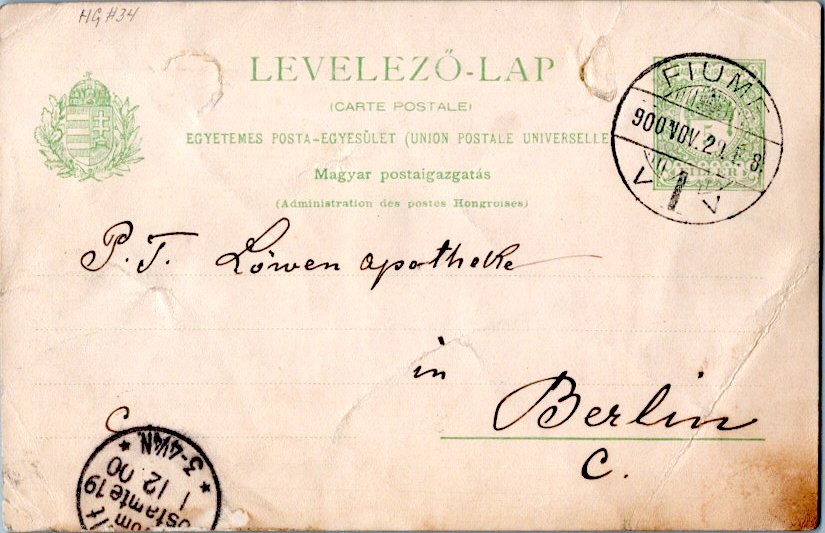 HG #34
LEVELEZŐ-LAP
(CARTE POSTALE)
EGYETEMES POSTA-EGYESÜLET (UNION POSTALE UNIVERSELLE
Magyar postaigazgatás
(Administration des postes Hongroises)
FIUME
900 NOV. 29.
V 1 V
5
FILLÉR
P. T. Löwen apotheke
in
Berlin
C.
C
* 3-4 V.N. *
1 12. 00
ostamte 19
vom